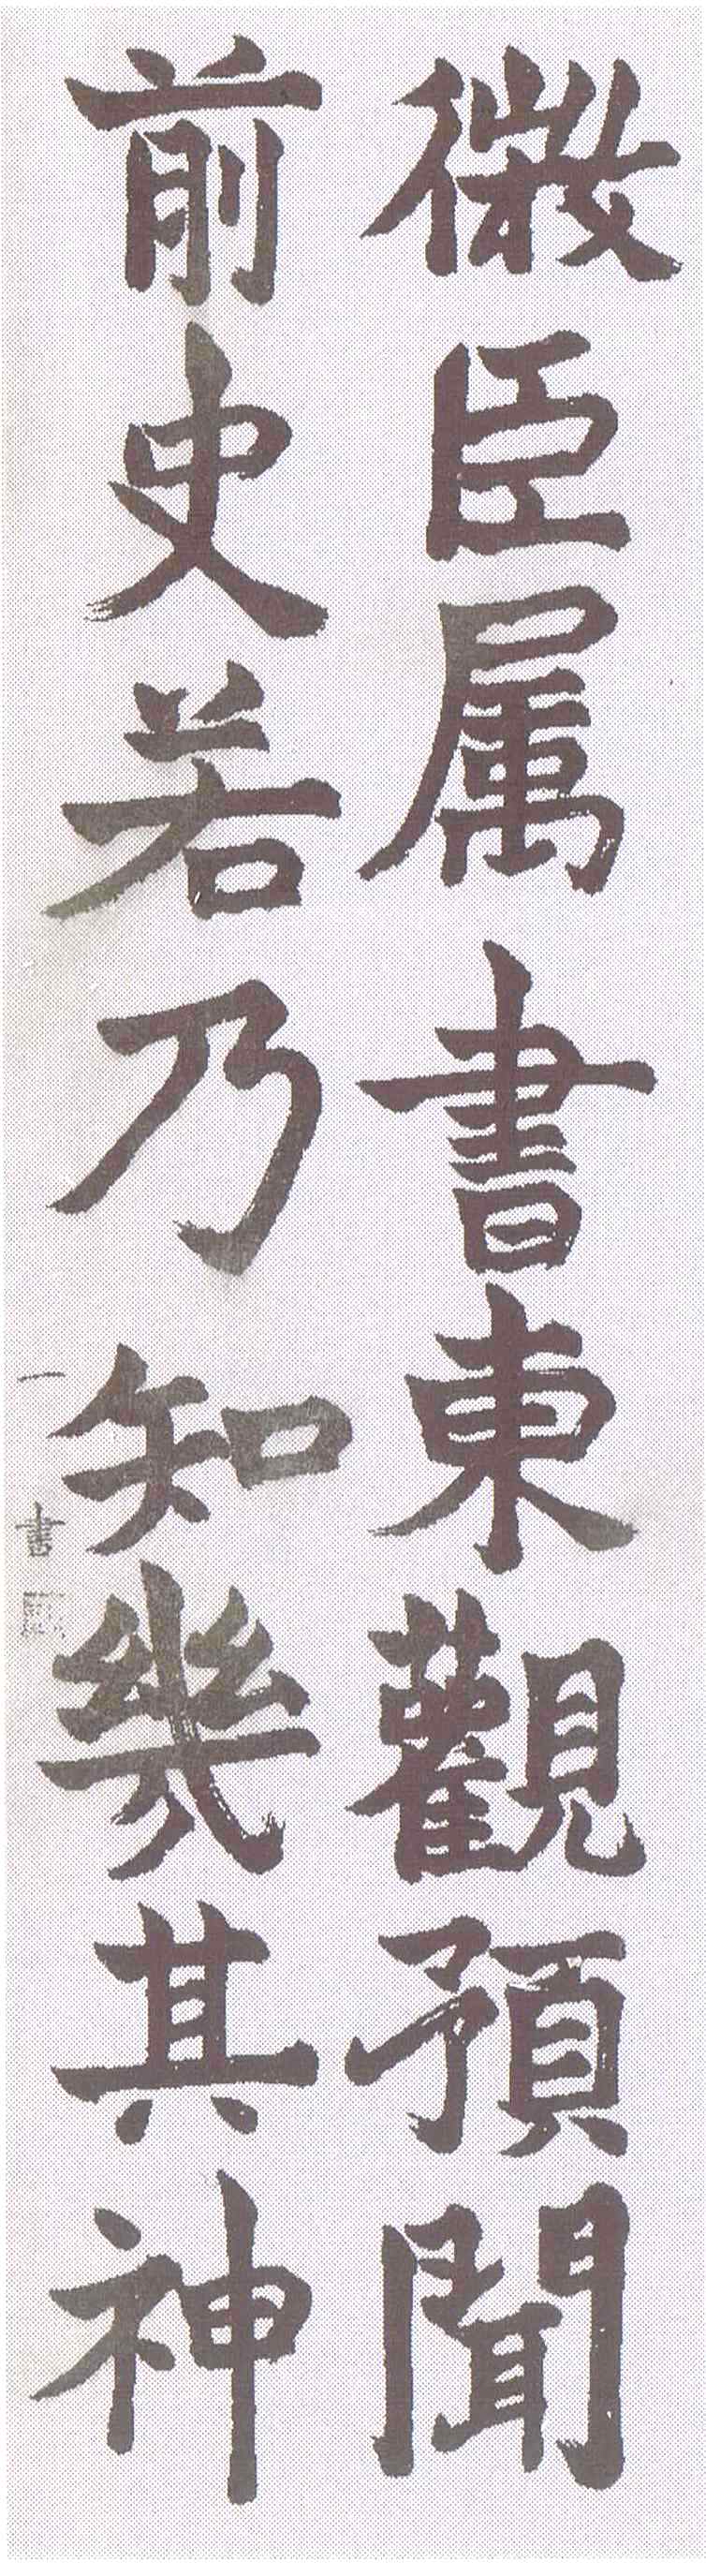 微臣属書東觀預聞
前史若乃知幾其神
一 書